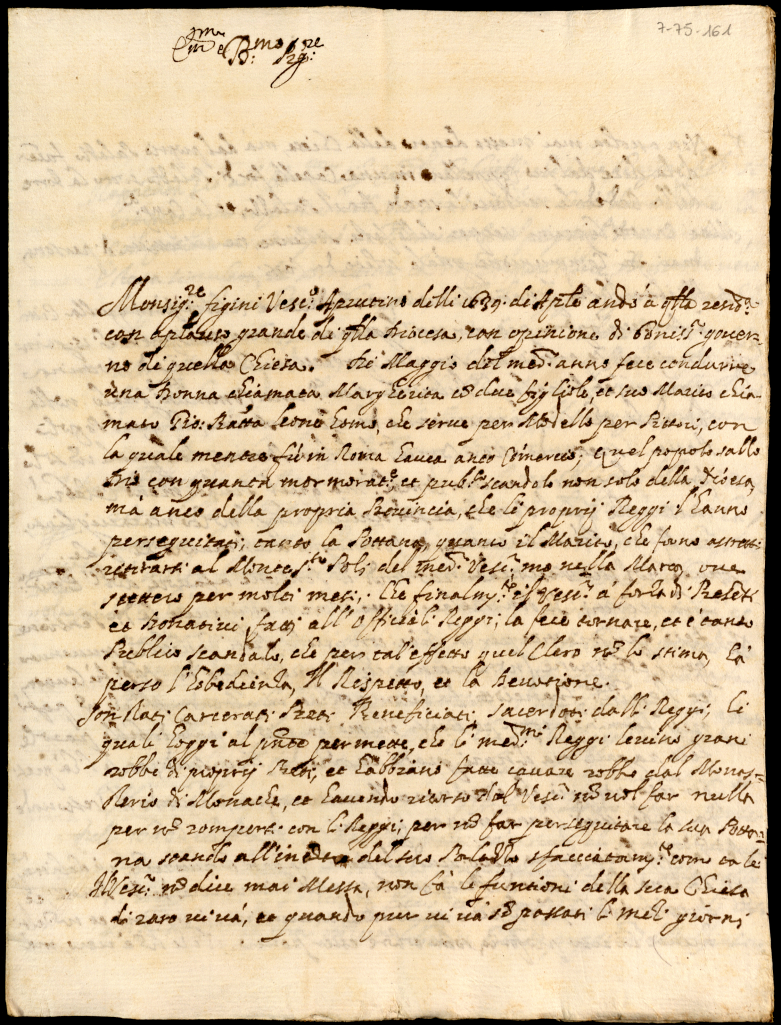 7-75-161
Em.mo e R.mo Sig.re
Monsig.re figini Vesc.o Aprutino delli 1639. di Aple andò à q.lla resid.a
con aplauso grande di q.lla Diocesa, con opinione di bonis.o gover-
no di quella Chiesa. Di Maggio del med.o anno fece condurre
una Donna chiamata Margherita co due figliole, et suo Marito chia-
mato Gio: Batta leone homo, che serve per Modello per Pittori, con
la quale mentre fù in Roma havea anco Comercio; Quel popolo sallo
Dio con quanta mormorat.e et pub.co scandolo non solo della Diocesa,
mà anco della propria Provincia, che li proprij Reggi l'hanno
perseguitati, tanto la Pottana, quanto il Marito, che forno astretti
ritirarsi al Monte s.to Poli del med.o Vesc.o mo nella Marca, ove
stettero per molti mesi, Che finalm.te Vesc.o à forza di Presenti
et Donativi fatti all'Officiali Reggi, la fece tornare, et è tanto
Publico scandalo, che per tal'effetto quel Clero nō lo stima, hà
perso l'Obedienza, Il Rispetto, et la Devotione.
Son stati Carcerati Preti Beneficiati, sacerdoti dalli Reggi, li
quali hoggi al p̄nte permette, che li med.mi Reggi levino grani
robbe di proprij Preti, et habbiano fatte cavare robbe dal Monas-
terio di Monache, et havendo ricorso dal Vesc.o nō vol far nulla
per nō romperse con li Reggi, per nō far perseguitare la sua Potta-
na stando all' del suo Palazzo sfacciatam.te come tale
Il Vesc.o nō dice mai Messa, non fà le funtioni della sua Chiesa
di raro vi và, et quando pur vi và sō passati li mesi, giorni